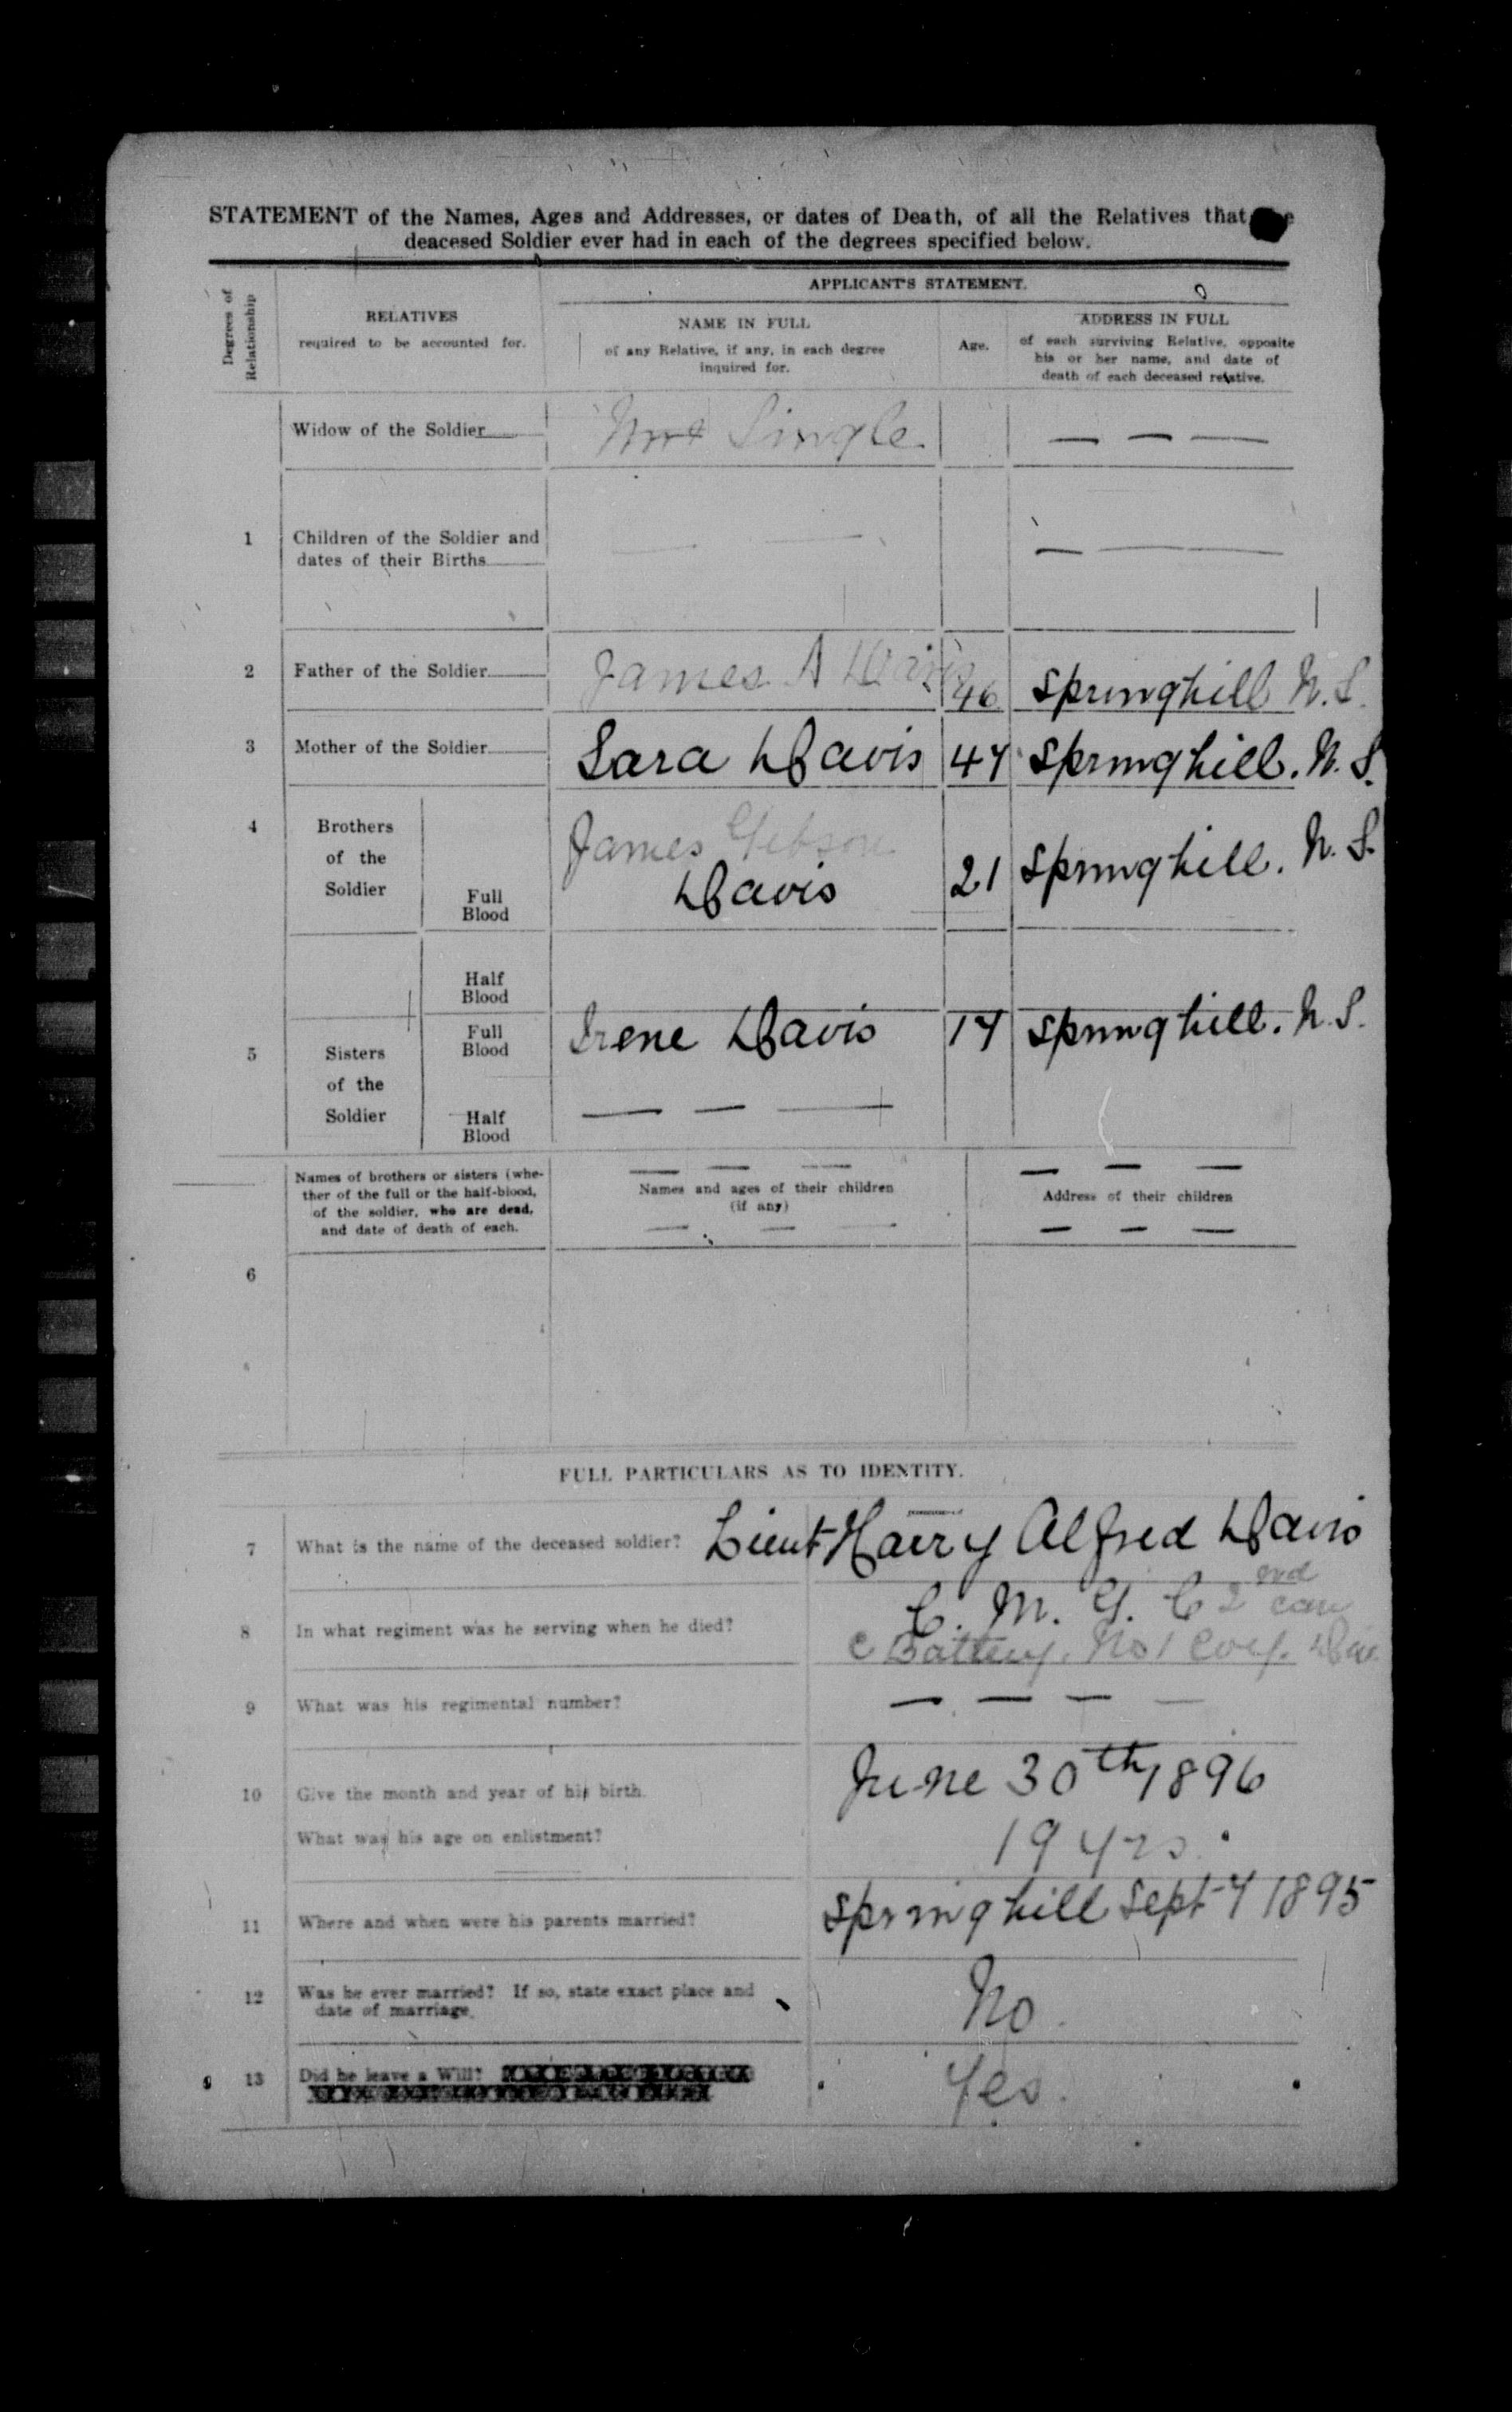 STATEMENT of the Names, Ages and Addresses, or dates of Death, of all the Relatives that
deacesed Soldier ever had in each of the degrees specified below.
Degrees of
Relationship
RELATIVES
required to be accounted for.
APPLICANT'S STATEMENT.
NAME IN FULL
of any Relative, if any, in each degree
inquired for.
Age.
ADDRESS IN FULL
of each surviving Relative, opposite
his or her name, and date of
death of each deceased relative.
Widow of the Soldier
Single
— — —
1
Children of the Soldier and
dates of their Births
— —
— —
2
Father of the Soldier
James A Davis
46
Springhill N.S.
3
Mother of the Soldier
Sara Davis
47
Springhill. N.S.
4
Brothers
of the
Soldier
Full
Blood
James Gibson
Davis
21
Springhill. N.S.
Half
Blood
5
Sisters
of the
Soldier
Full
Blood
Irene Davis
17
Springhill. N.S.
Half
Blood
— — —
Names of brothers or sisters (whe-
ther of the full or the half-blood,
of the soldier, who are dead,
and date of death of each.
— — —
Names and ages of their children
(if any)
— — —
— — —
Address of their children
— — —
6
FULL PARTICULARS AS TO IDENTITY.
7
What is the name of the deceased soldier?
Lieut Harry Alfred Davis
8
In what regiment was he serving when he died?
C. M. G. C 2nd Can
C Battery. No 1 Coy. Div.
9
What was his regimental number?
— — — —
10
Give the month and year of his birth.
June 30th 1896
What was his age on enlistment?
19 yrs.
11
Where and when were his parents married?
Springhill Sept 7 1895
12
Was he ever married? If so, state exact place and
date of marriage.
No.
13
Did he leave a Will?
Yes.